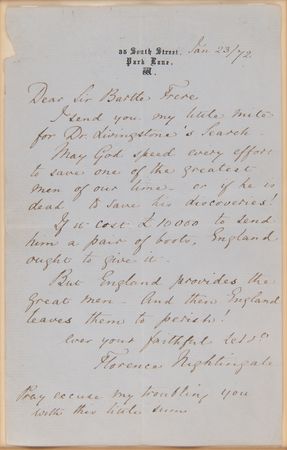 35 South Street,
Park Lane,
W.
Jan 23/72
Dear Sir Bartle Frere
I send you my little mite
for Dr. Livingstone's Search.
May God speed every effort
to save one of the greatest
men of our time - or if he is
dead to save his discoveries!
If it cost £10000 to send
him a pair of boots, England
ought to give it.
But England provides the
Great men - And then England
leaves them to perish!
ever your faithful servt
Florence Nightingale
Pray excuse my troubling you
with this little sum